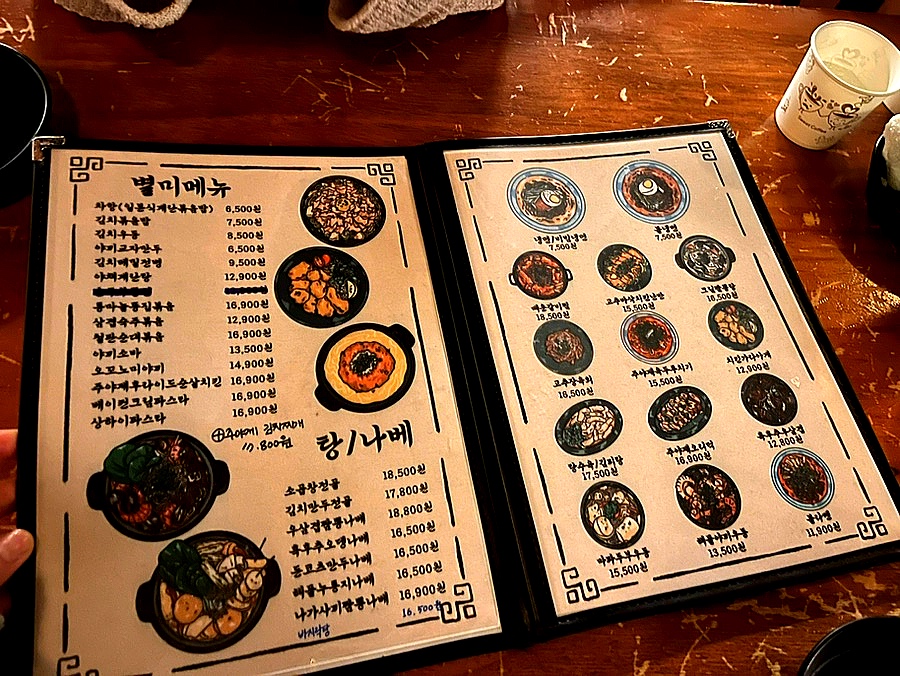 별미메뉴
차항(일본식계란볶음밥) 6,500원
김치볶음밥 7,500원
김치우동 8,500원
야끼교자만두 6,500원
김치메밀전병 9,500원
야채계란탕 12,900원
통마늘똥집볶음 16,900원
삼겹숙주볶음 12,900원
철판순대볶음 16,900원
야끼소바 13,500원
오꼬노미야끼 14,900원
주야제후라이드순살치킨 16,900원
베이컨크림파스타 16,900원
상하이파스타 16,900원
⊕주야제 김치찌개
11.800원
탕/나베
소곱창전골 18,500원
김치만두전골 17,800원
우삼겹짬뽕나베 18,800원
흑후추오뎅나베 16,500원
돈코츠만두나베 16,500원
해물누룽지나베 16,500원
나가사끼짬뽕나베 16,900원
16.500
냉면/비빔냉면
7,500원
불냉면
7,500원
매운갈비찜
18,500원
고추바삭치킨난반
15,500원
크림짬뽕탕
16,500원
고추잡육회
18,500원
주야제육두루치기
15,500원
치킨가라아게
12,900원
탕수육/김피탕
17,500원
주야제오니찜
16,900원
흑후추우삼겹
12,800원
마파두부우동
15,500원
해물야끼우동
13,500원
불라면
11,900원